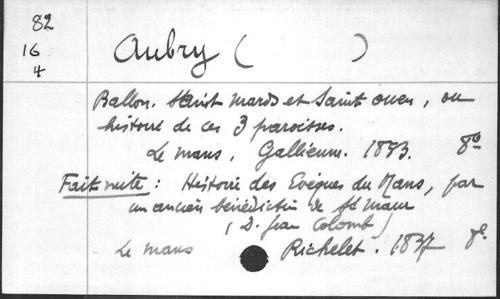 82
16
4
Aubry (          )
Ballon. Saint Mards et Saint Ouen, ou
histoire de ces 3 paroisses.
Le Mans, Gallienne. 1873. 8º
Fait suite : Histoire des Evêques du Mans, par
un ancien bénédictin de St Maur
( D. par Colomb )
Le Mans Richelet. 1837 8º